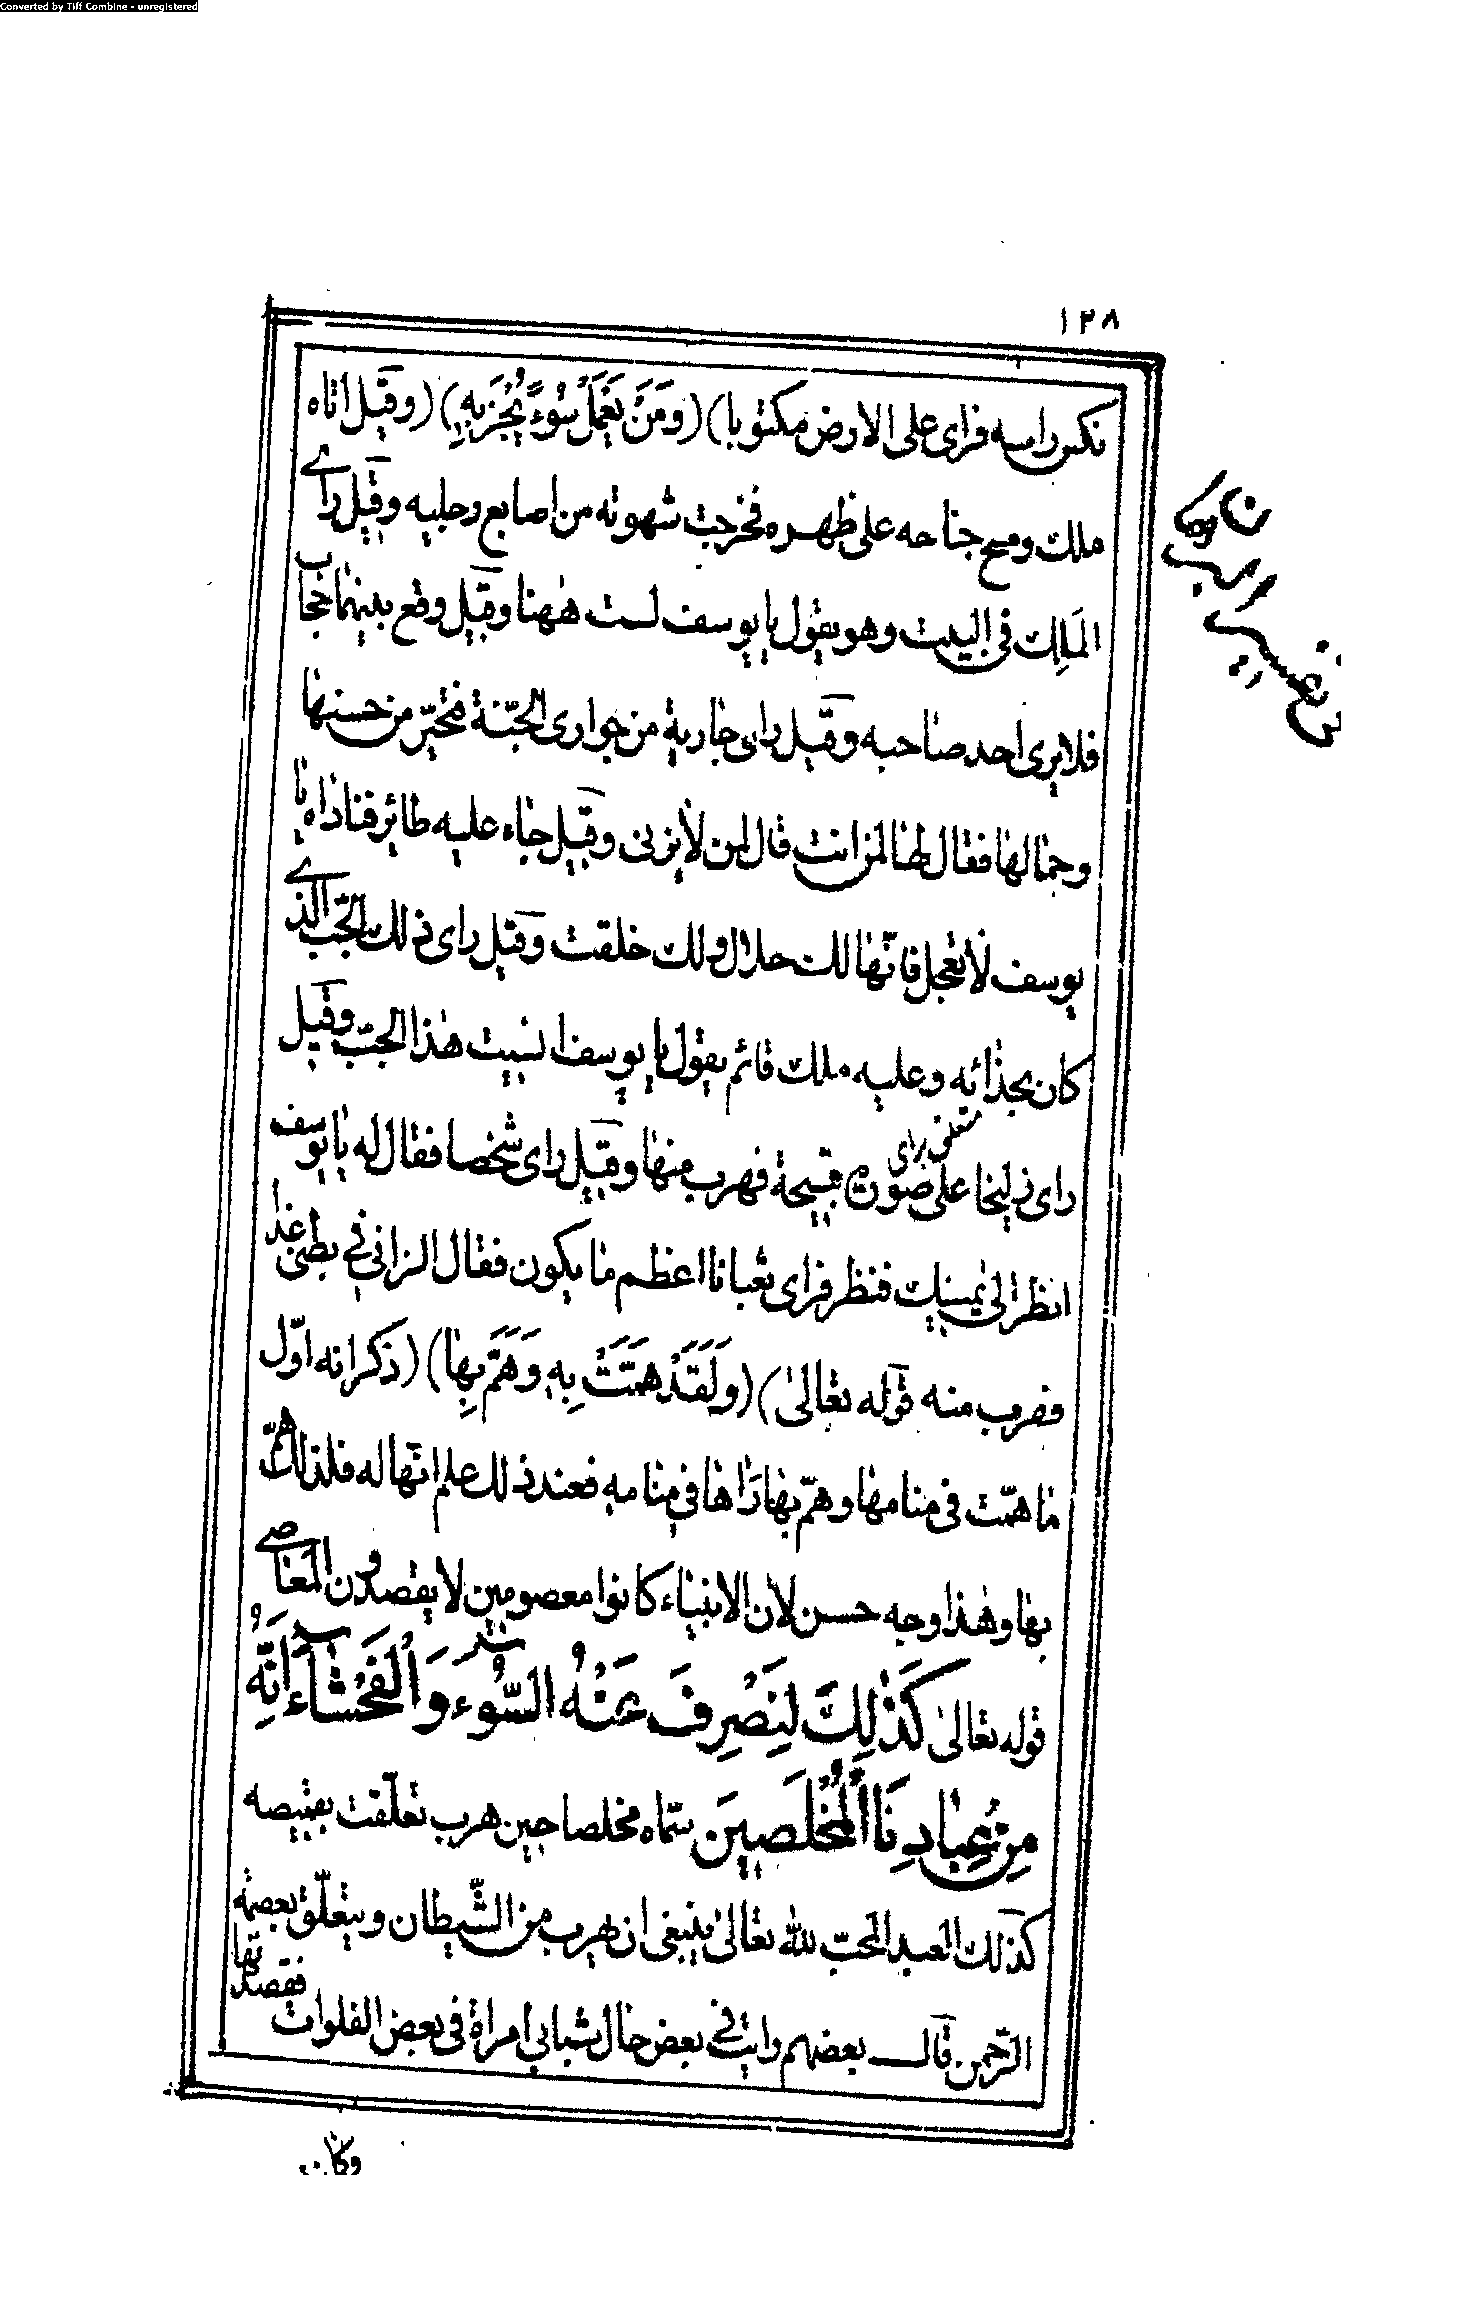 Converted by Tiff Combine - unregistered
١٢٨
نكس راسه فراى على الارض مكتوبا) (وَمَنْ يَعْمَلْ سُوءً يُجْزَ بِهِ) (وقيل اتاه
ملك ومسح جناحه على ظهره فخرجت شهوته من اصابع رجليه وقيل راى
الملك فى البيت وهو يقول يا يوسف لست ههنا وقيل وقع بينهما حجاب
فلا يرى احد صاحبه وقيل راى جارية من جوارى الجنّة فتحيّر من حسنها
وجمالها فقال لها لمن انت قال لمن لا يزنى وقيل جاء عليه طائر فناداه يا
يوسف لا تعجل فانّها لك حلال ولك خلقت وقيل راى ذلك الجبّ الذى
كان بحذائه وعليه ملك قائم يقول يا يوسف انسيت هذا الجبّ وقيل
راى زليخا على صورة قبيحة فهرب منها وقيل راى شخصا فقال له يا يوسف
انظر الى يمينك فنظر فراى ثعبانا اعظم ما يكون فقال الزانى فى بطنى غدا
ففرب منه قوله تعالى) (وَلَقَدْ هَمَّتْ بِهِ وَهَمَّ بِها) (ذكر انه اوّل
ما همّت فى منامها وهمّ بها راها فى منامه فعند ذلك علم انّها له فلذلك همّ
بها وهذا وجه حسن لان الانبياء كانوا معصومين لا يقصدون المعاصى
قوله تعالى كَذٰلِكَ لِنَصْرِفَ عَنْهُ السُّوءَ وَالْفَحْشاءَ اِنَّهُ
مِنْ عِبادِنَا الْمُخْلَصِينَ سمّاه مخلصا حين هرب تعلّقت بقميصه
كذلك العبد المحبّ لله تعالى ينبغى ان يهرب من الشّيطان ويتعلّق بعصمة
الرّحمن قال بعضهم رايت فى بعض حال شبابى امراة فى بعض الفلوات فقصدتها
وكان